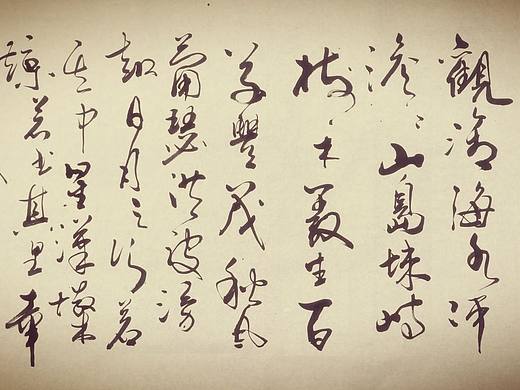 觀滄海水何
澹々山島竦峙
樹木叢生百
草豐茂秋風
蕭瑟洪波湧
起日月之行若
其中星漢燦
爛若出其里幸